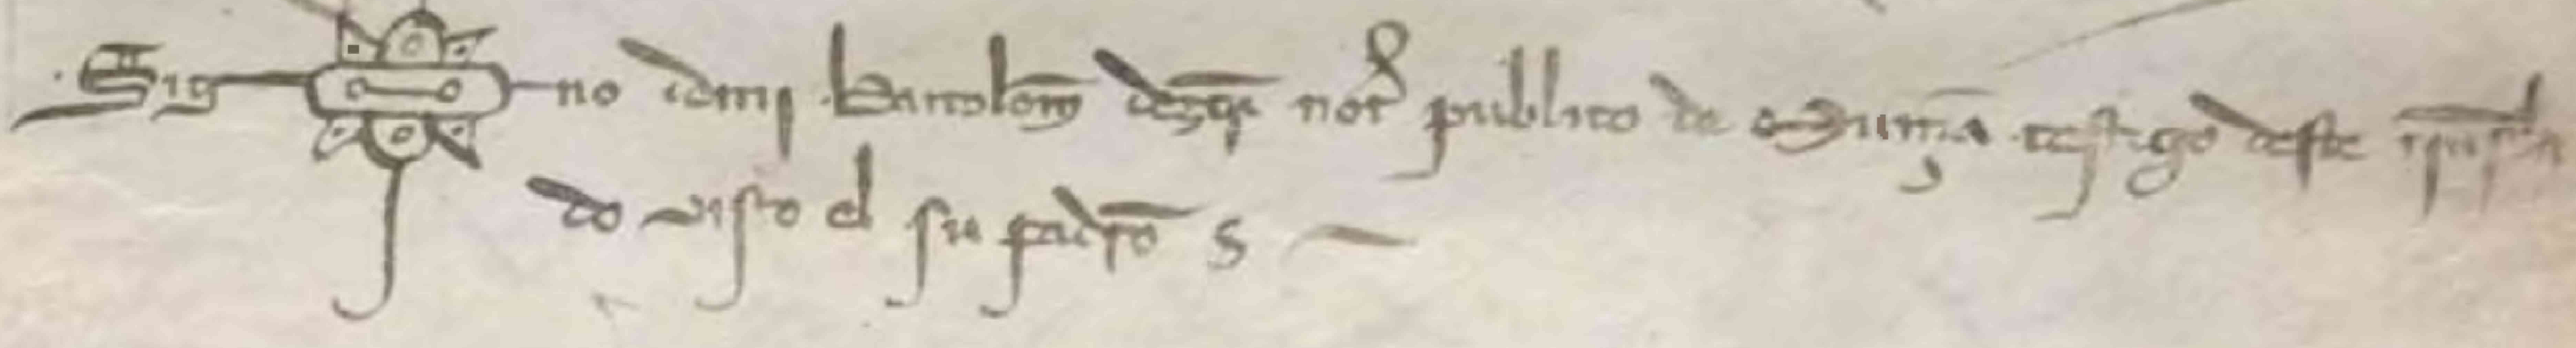 Sig no de mj Bartolome not publico de testigo deste
do visto el su padro s